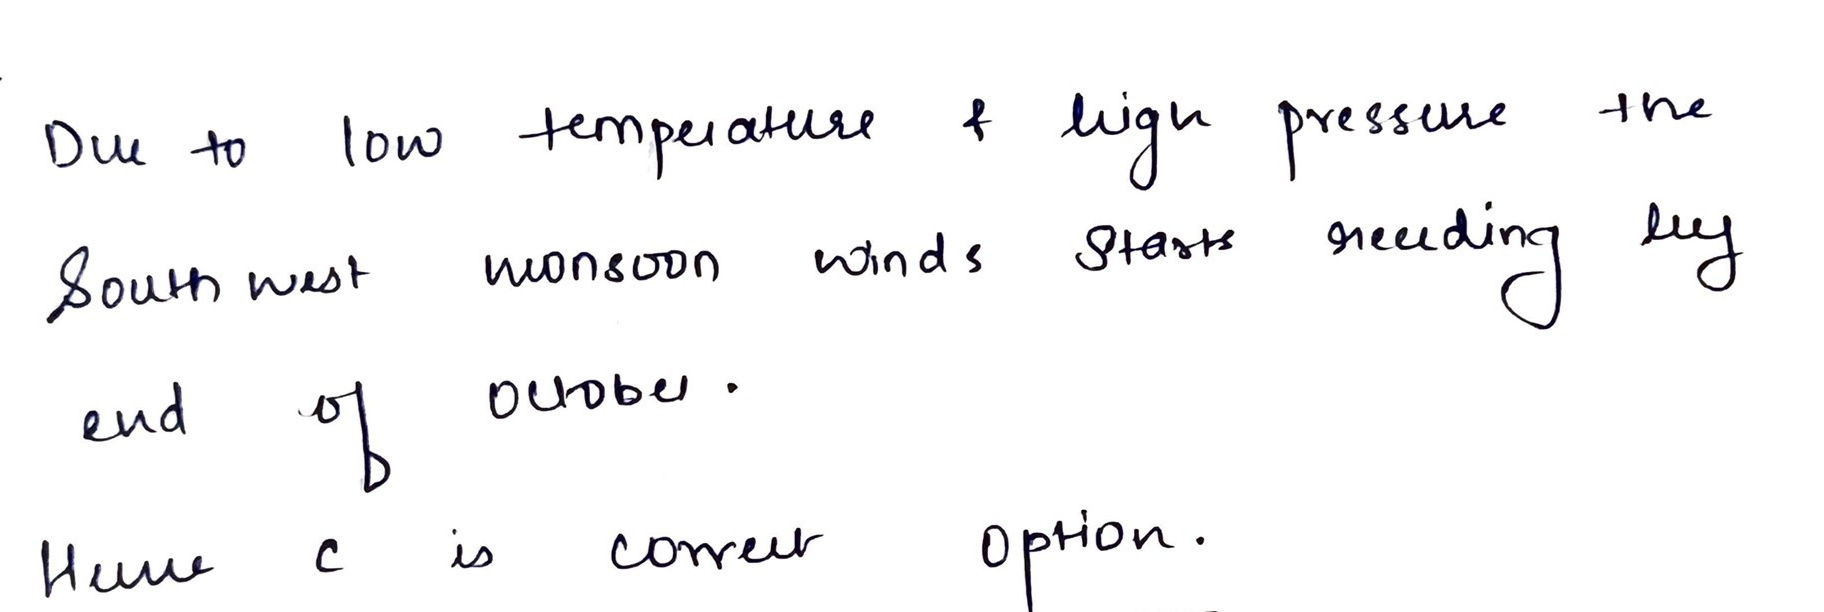 Due to low temperature & high pressure the
South west monsoon winds starts receding by
end of october.
Hence c is correct option.